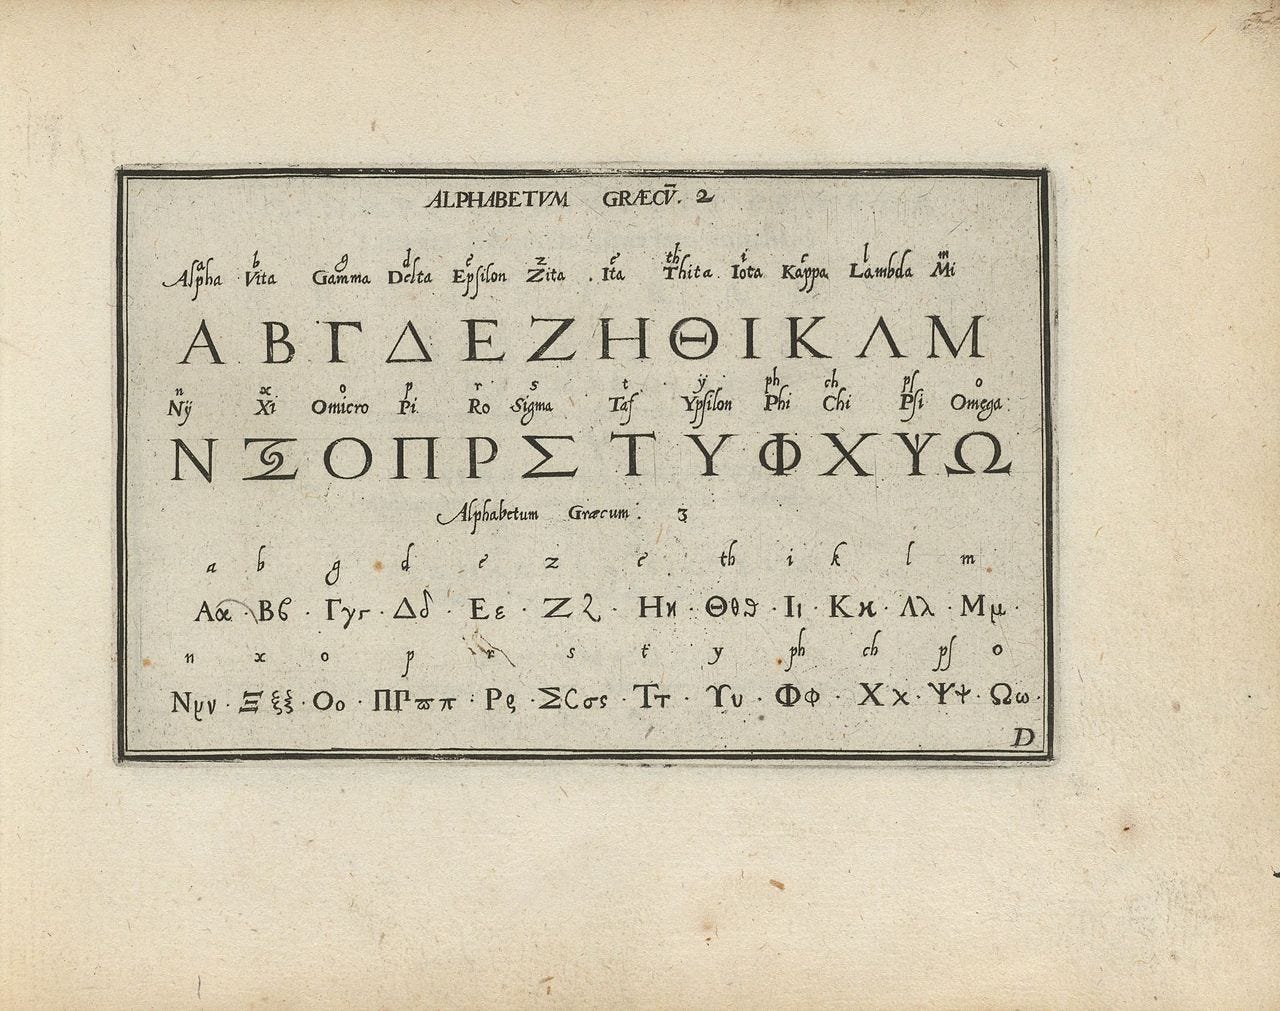 ALPHABETVM GRÆCV̄. 2
a b g d e z e th i c l m
Alpha Vita Gamma Delta Epſilon Zita . Ita Thita Iota Kappa Lambda Mi
Α Β Γ Δ Ε Ζ Η Θ Ι Κ Λ Μ
n x o p r s t ÿ ph ch pſ o
Nÿ Xi Omicro Pi Ro Sigma Taf Ypſilon Phi Chi Pſi Omega
Ν Ξ Ο Π Ρ Σ Τ Υ Φ Χ Ψ Ω
Alphabetum Græcum . 3
a b g d e z e th i k l m
Αα · Βϐ · Γγ · Δδ · Εε · Ζζ · Ηη · Θθϑ · Ιι · Κκ · Λλ · Μμ ·
n x o p r s t y ph ch pſ o
Νμν · Ξξξ · Οο · ΠΓϖπ · Ρρ · ΣCσς · Ττ · ϒυ · Φφ · Χχ · Ψψ · Ωω ·
D